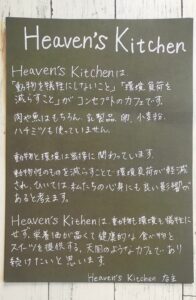 Heaven's Kitchen
Heaven's Kitchenは
「動物を犠牲にしないこと」「環境負荷を
減らすこと」がコンセプトのカフェです。
肉や魚はもちろん、乳製品、卵、小麦粉、
ハチミツも使っていません。
動物と環境は密接に関わっています。
動物性のものを減らすことで環境負荷が軽減
され、ひいては私たちの心身にも良い影響が
あると考えます。
Heaven's Kitchenは、動物も環境も犠牲に
せず、栄養価が高くて健康的な食べ物と
スイーツを提供する、天国のようなカフェであり
続けたいと思います。
Heaven's Kitchen 店主